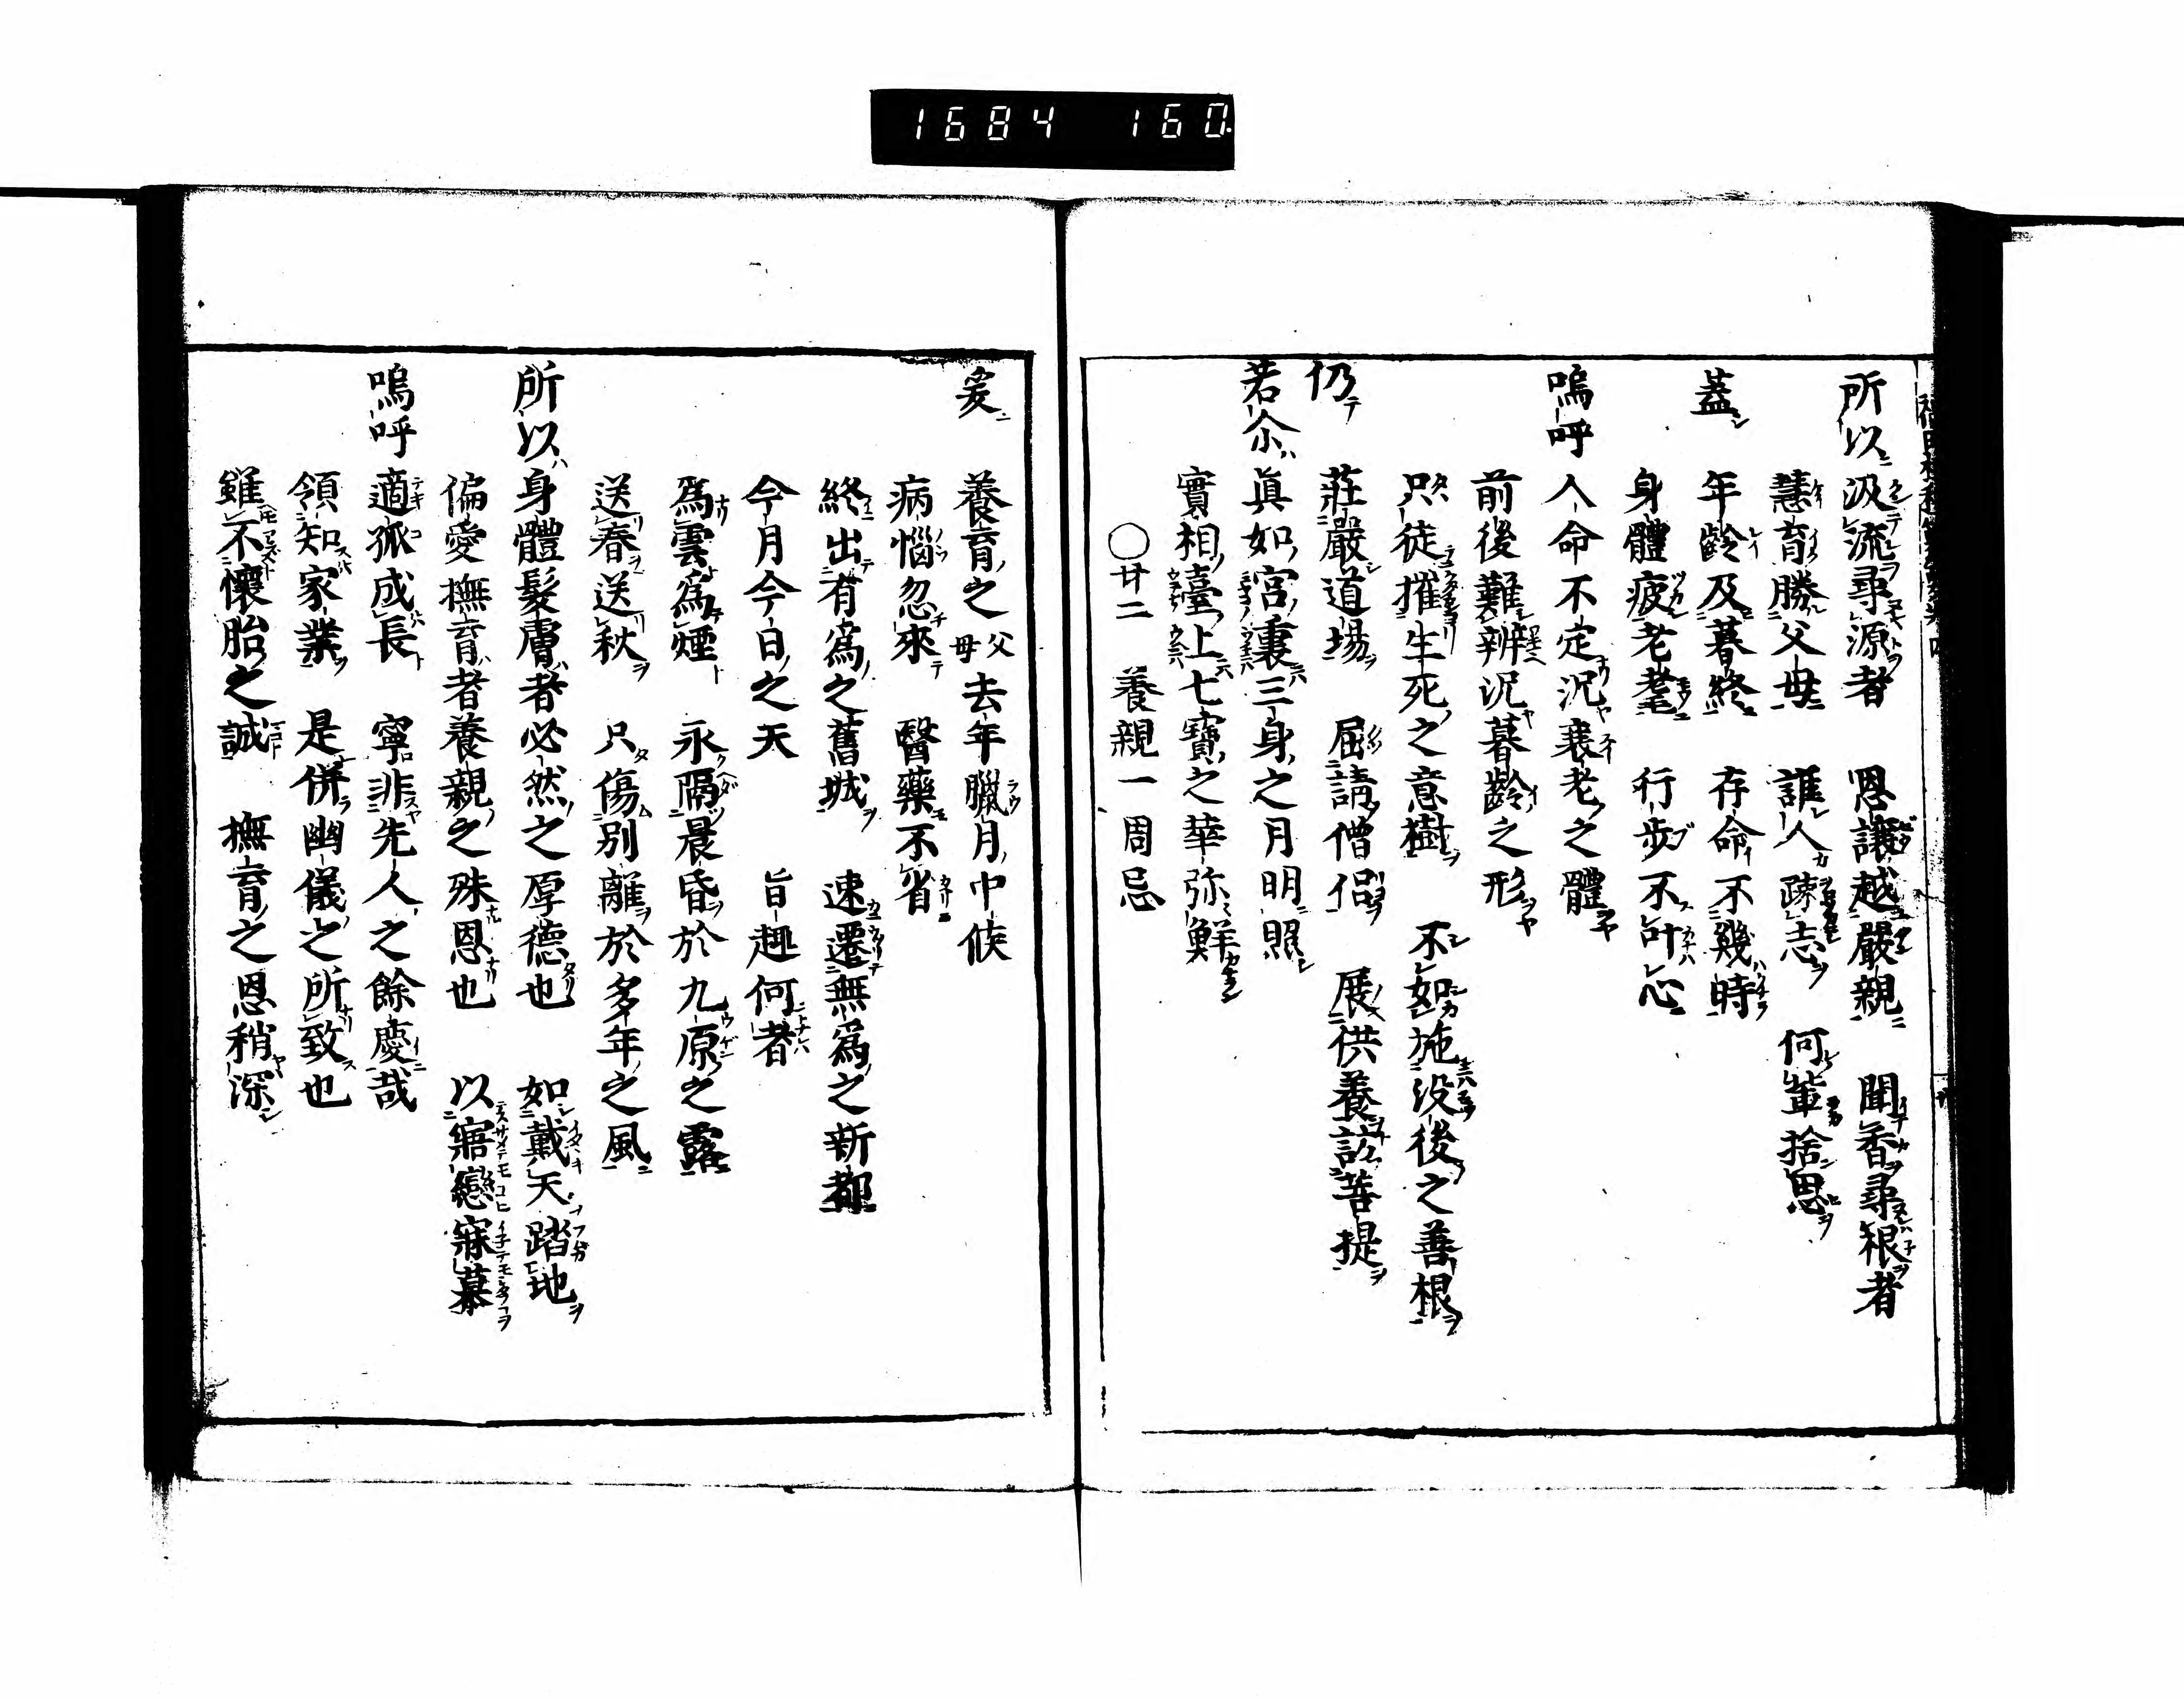 1684 160
所以 汲流尋源者 恩讓越嚴親 聞香尋根者
慧育勝父母 誰人踈志 何輩捨恩
蓋 年齡及暮終 存命不幾時
身體疲老耄 行步不叶心
嗚呼 人命不定況衰老之體
前後難辨況暮齡之形
只徒摧生死之意樹 不如施没後之善根
仍 莊嚴道場 屈請僧侶 展供養訪菩提
若尒 眞如宮裏三身之月明照
實相臺上七寶之華弥鮮
○廿二 養親一周忌
爰 養育之父母去年臘月中候
病惱忽來 醫藥不省
終出有為之舊城 速遷無為之新都
今月今日之天 旨趣何者
為雲為煙 永隔晨昏於九原之露
送春送秋 只傷別離於多年之風
所以 身體髮膚者必然之厚德也 如戴天踏地
偏愛撫育者養親之殊恩也 以寤戀寐慕
嗚呼 適孤成長 寧非先人之餘慶哉
領知家業 是併幽儀之所致也
雖不懷胎之誠 撫育之恩稍深